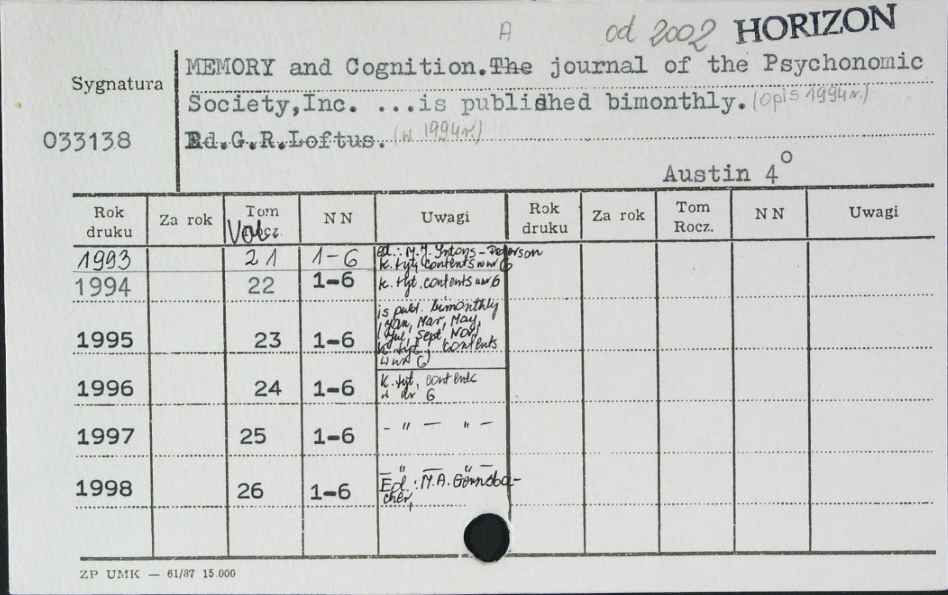 A od 2002 HORIZON
Sygnatura
MEMORY and Cognition.The journal of the Psychonomic
Society,Inc. ...is published bimonthly. (opis 1994r.)
033138
Ed.G.R.Loftus. (w 1994r.)
Austin 4°
Rok druku Za rok Tom Vol. NN Uwagi Rok druku Za rok Tom Rocz. NN Uwagi
1993 21 1-6 Ed.: M.J. Intons-Peterson
k. tyt, contents w nr 6
1994 22 1-6 k. tyt. contents w nr 6
is publ. bimonthly
(Jan, Mar, May,
Jul, Sept, Nov)
1995 23 1-6 k. tyt, contents
w nr 6
1996 24 1-6 k. tyt, contents
w nr 6
1997 25 1-6 - " - " -
" - " -
1998 26 1-6 Ed.: M.A.
ZP UMK — 61/87 15.000